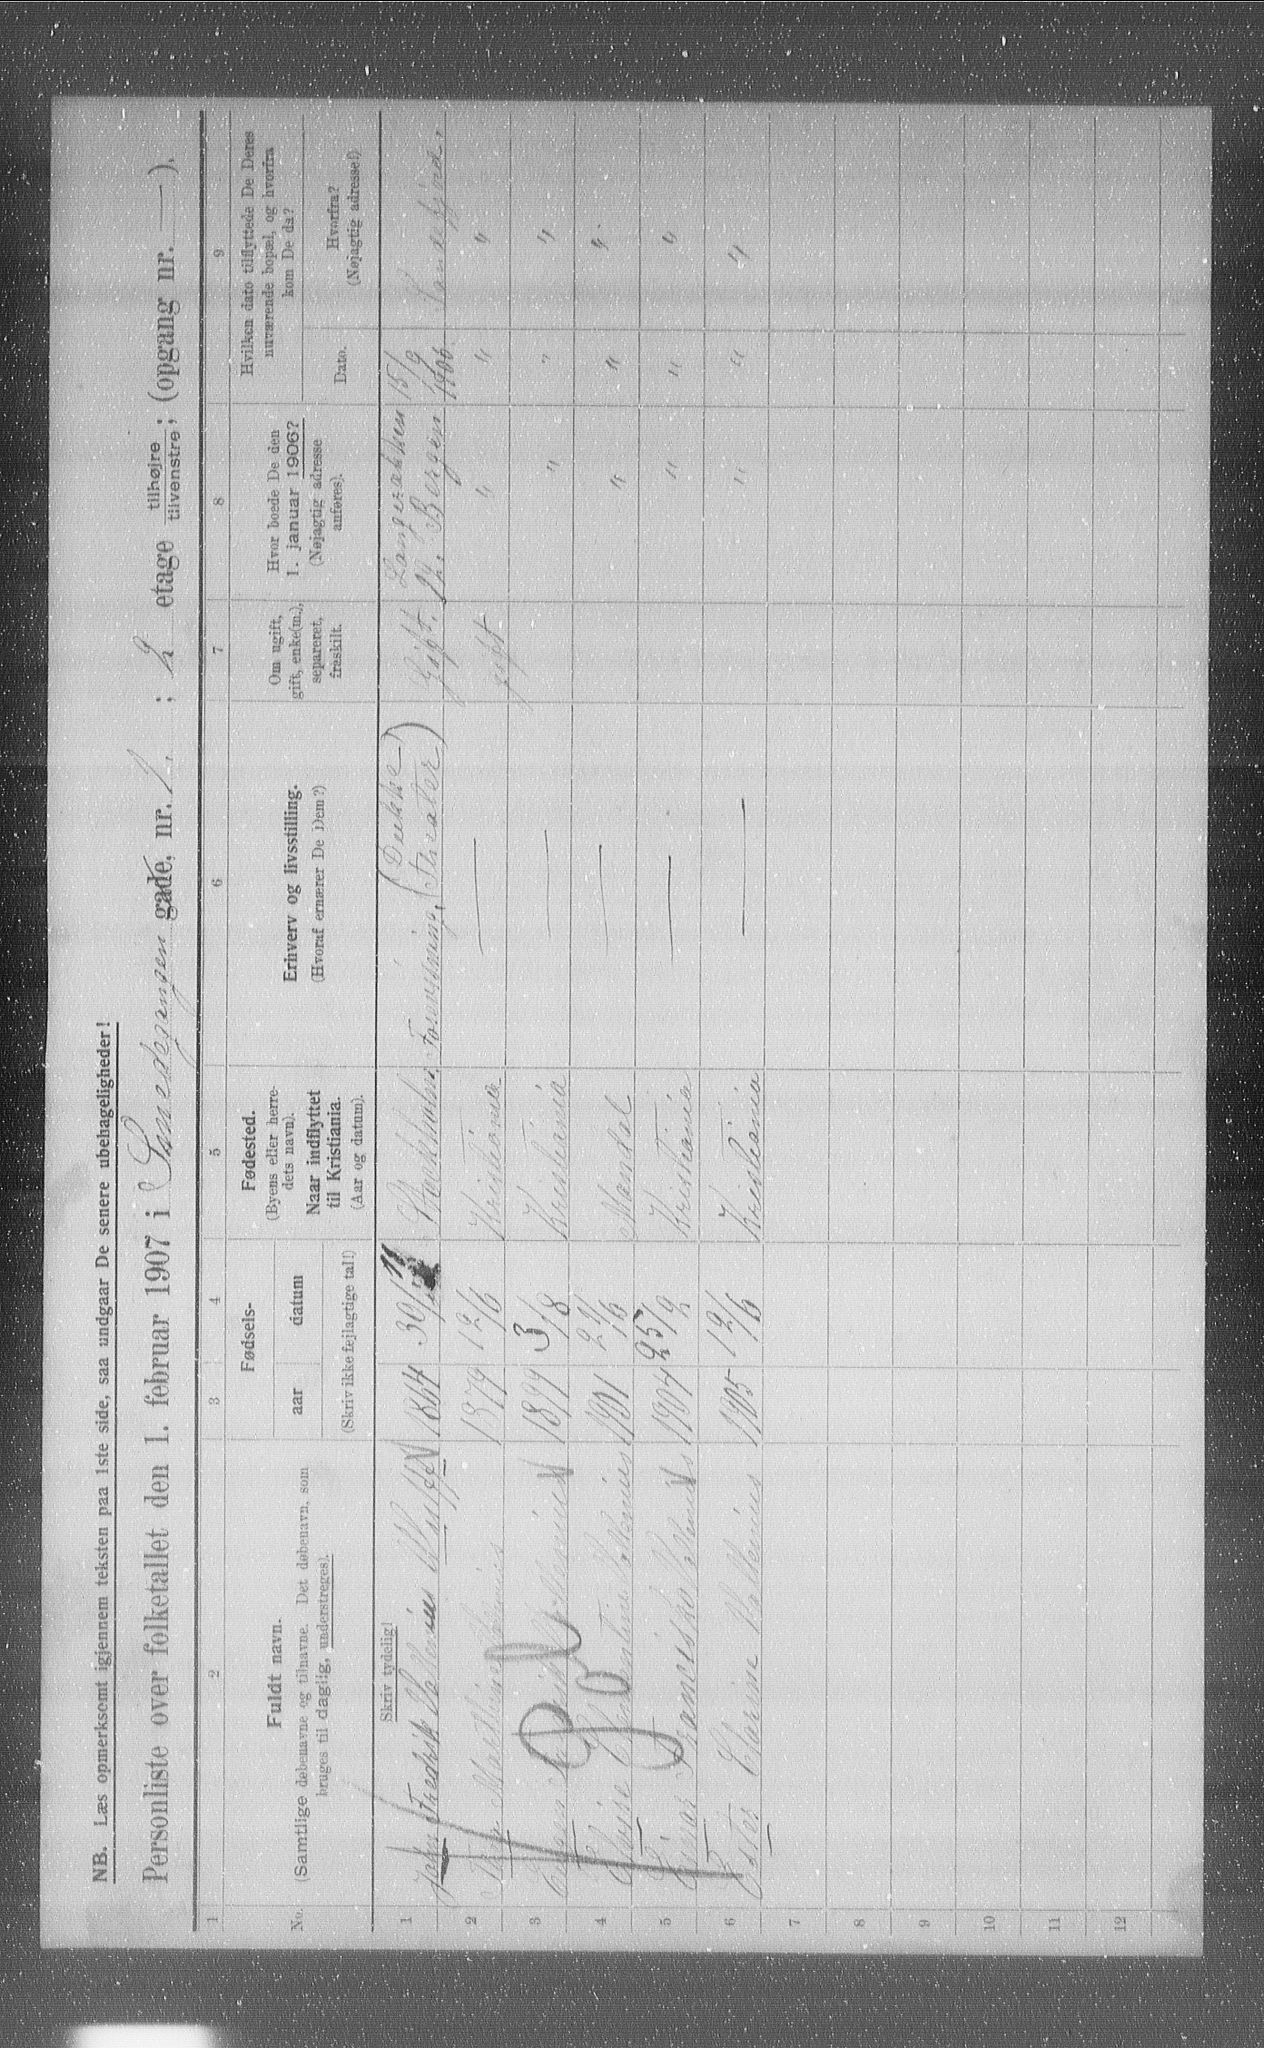 NB. Læs opmerksomt igjennem teksten paa 1ste side, saa undgaar De senere ubehageligheder!
Personliste over folketallet den 1. februar 1907 i Smedgangen gade, nr. 1 ; 2 etage tilhøjre tilvenstre; (opgang nr. — ).
1 2 3 4 5 6 7 8 9
No.
Fuldt navn.
(Samtlige døbenavne og tilnavne. Det døbenavn, som
bruges til daglig, understreges).
Skriv tydelig!
Fødsels-
aar datum
(Skriv ikke fejlagtige tal!)
Fødested.
(Byens eller herre-
dets navn).
Naar indflyttet
til Kristiania.
(Aar og datum).
Erhverv og livsstilling.
(Hvoraf ernærer De Dem?)
Om ugift,
gift, enke(m.),
separeret,
fraskilt.
Hvor boede De den
1. januar 1906?
(Nøjagtig adresse
anføres).
Hvilken dato tilflyttede De Deres
nuværende bopæl, og hvorfra
kom De da?
Dato.
Hvorfra?
(Nøjagtig adresse!).
1 John Fredrik Wallenius 1864 30/11 Stockholm Forevisning (Dukke Gift. 15/9
Theater) 12. Bergen 1906.
2 Wallenius 1879 12/6 Kristiania — gift " " "
3 Wallenius 1899 3/8 Kristiania — " " "
4 Wallenius 1901 21/6 Mandal — " " "
5 Einar Wallenius 1904 25/2 Kristiania — " " "
6 Ester Wallenius 1905 12/6 Kristiania — " " "
7
8
9
10
11
12